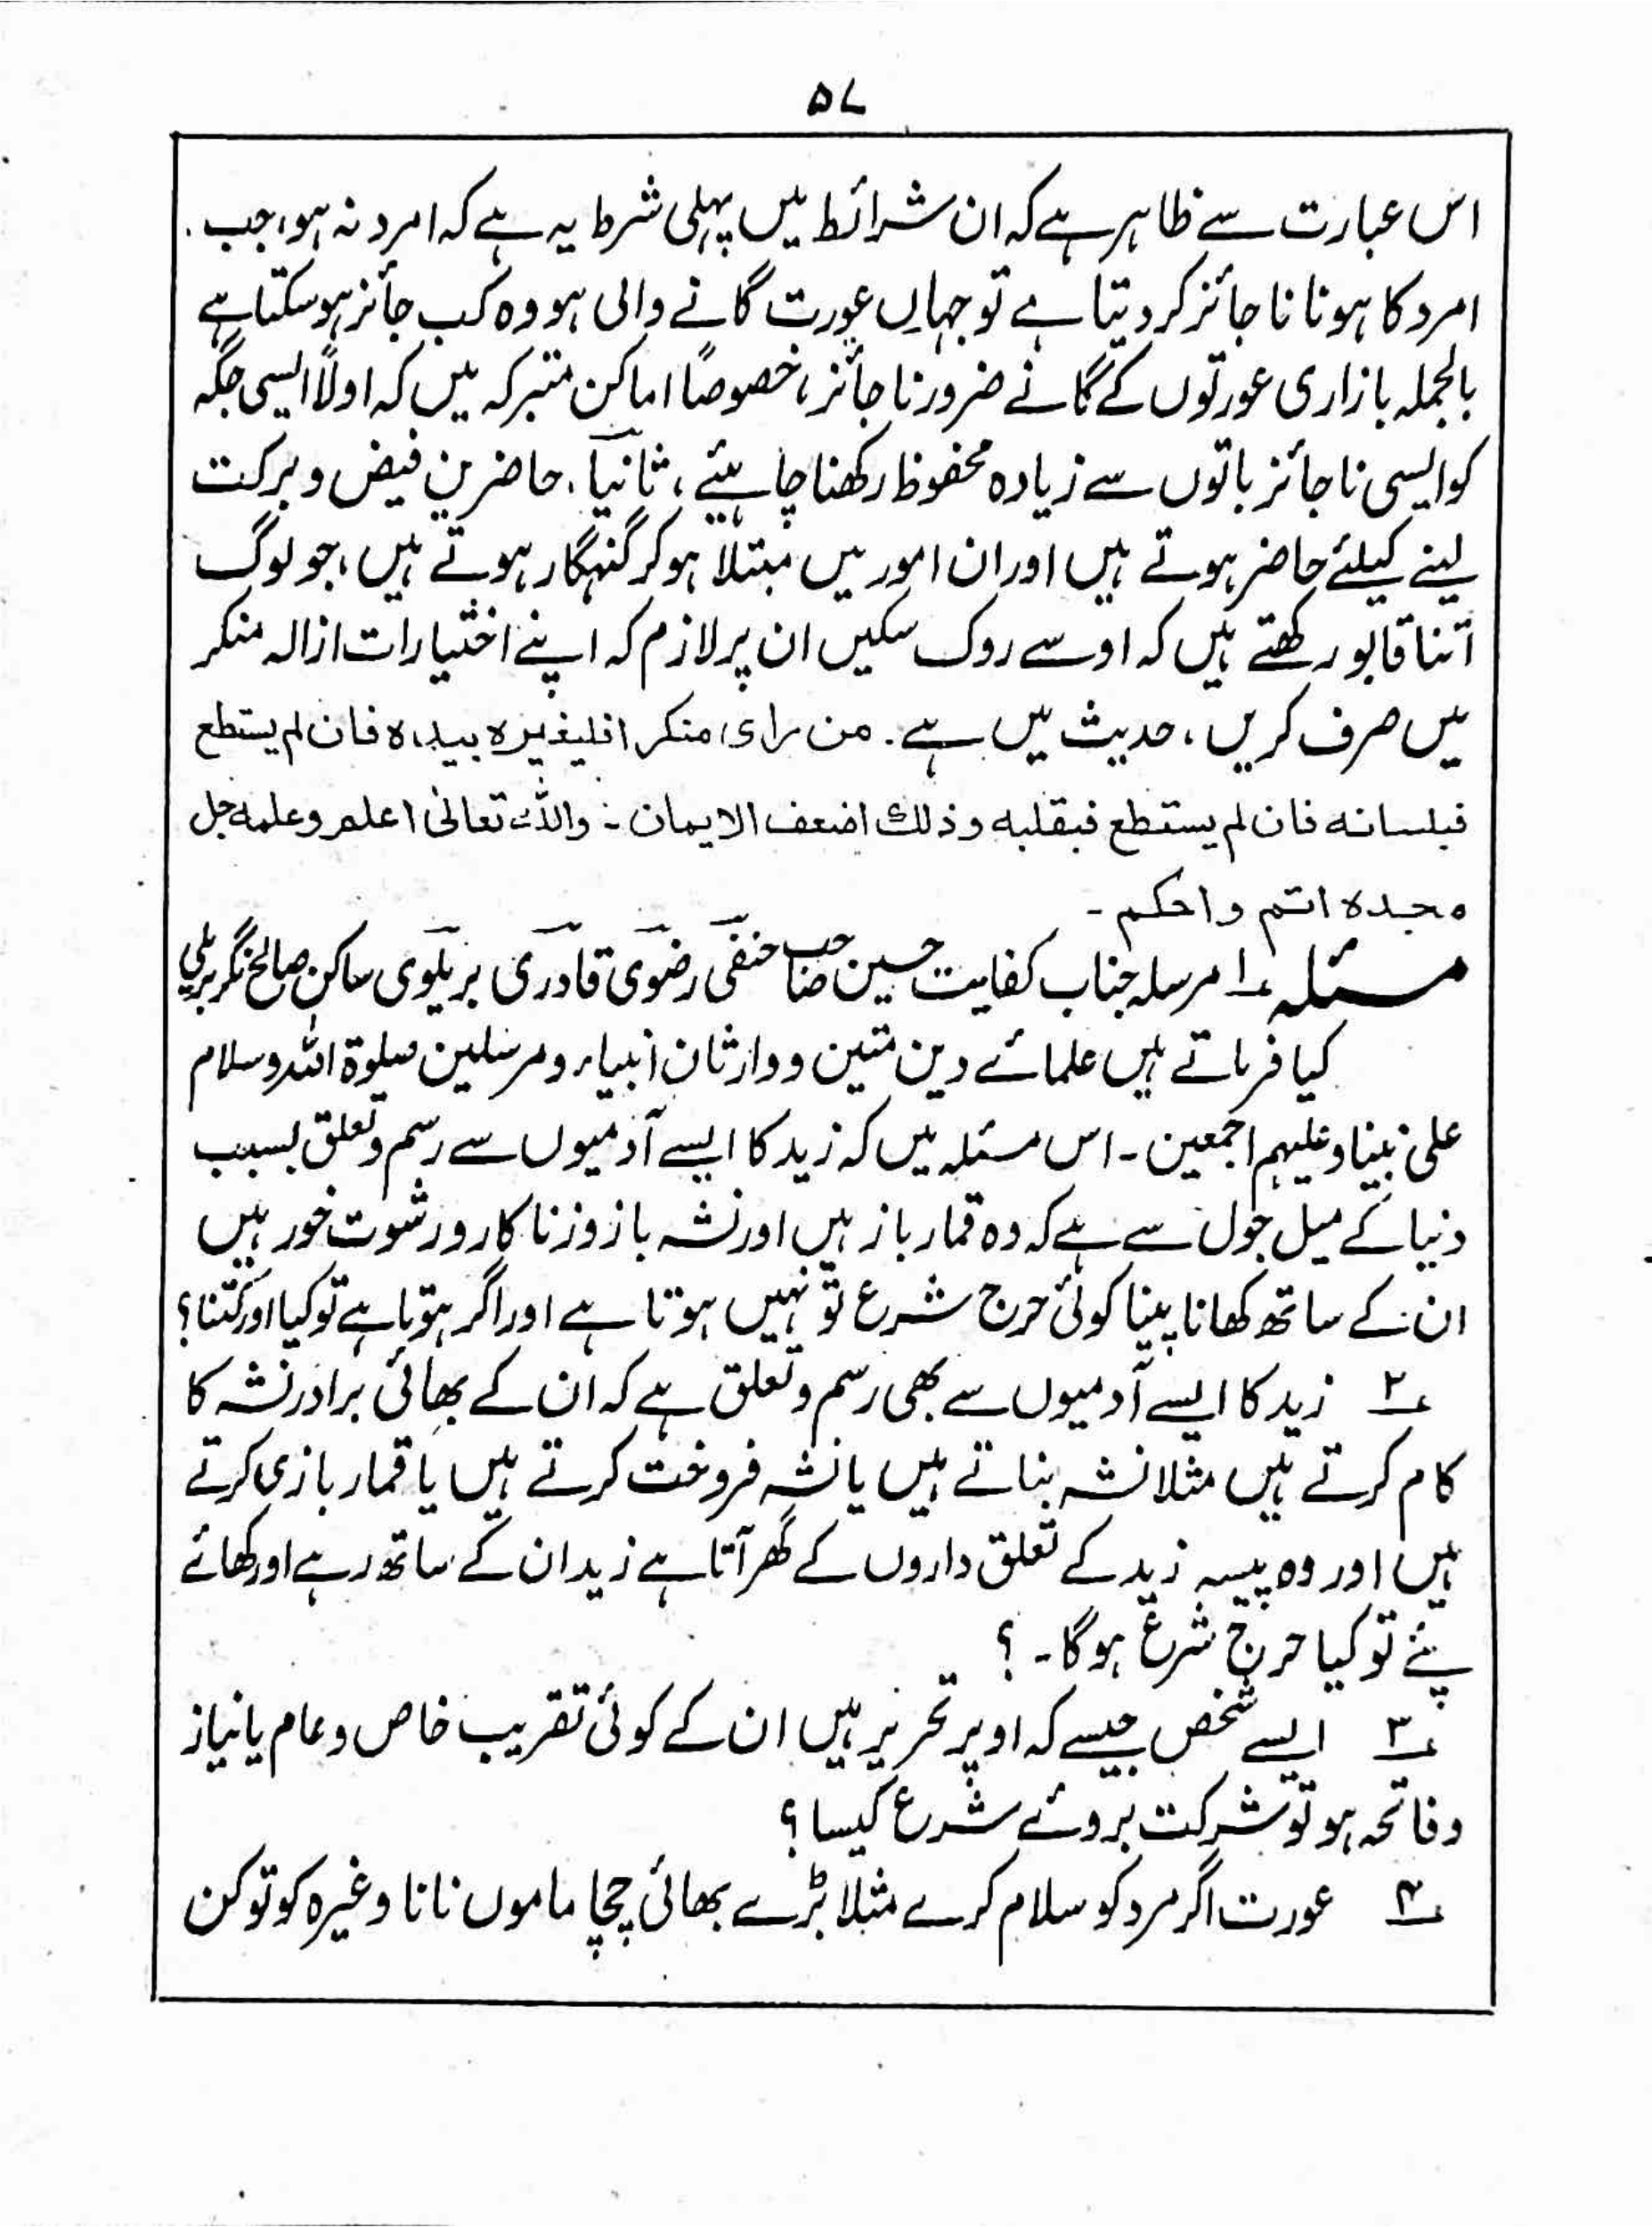 ۵۷
اس عبارت سے ظاہر ہے کہ ان شرائط میں پہلی شرط یہ ہے کہ امرد نہ ہو، جب
امرد کا ہونا ناجائز کردیتا ہے تو جہاں عورت گانے والی ہو وہ کب جائز ہوسکتا ہے
بالجملہ بازاری عورتوں کے گانے ضرور ناجائز، خصوصًا اماکن متبرکہ میں کہ اولاً ایسی جگہ
کو ایسی ناجائز باتوں سے زیادہ محفوظ رکھنا چاہیئے، ثانیًا۔ حاضرین فیض و برکت
لینے کیلئے حاضر ہوتے ہیں اور ان امور میں مبتلا ہوکر گنہگار ہوتے ہیں، جو لوگ
اتنا قابو رکھتے ہیں کہ اوسے روک سکیں ان پر لازم کہ اپنے اختیارات ازالہ منکر
میں صرف کریں، حدیث میں ہے۔ من رای منکرا فلیغیرہ بیدہ فان لم یستطع
فبلسانہ فان لم یستطع فبقلبہ وذلك اضعف الایمان ۔ واللہ تعالیٰ اعلم وعلمہ جل
مجدہ اتم واحکم ۔
مسئلہ ۱؎ مرسلہ جناب کفایت حسین صاحب حنفی رضوی قادری بریلوی ساکن صالح نگر بریلی
کیا فرماتے ہیں علمائے دین متین و وارثان انبیاء و مرسلین صلوۃ اللہ وسلام
علی نبینا وعلیہم اجمعین ۔ اس مسئلہ میں کہ زید کا ایسے آدمیوں سے رسم و تعلق بسبب
دنیا کے میل جول سے ہے کہ وہ قمار باز ہیں اور نشہ باز وزنا کار ورشوت خور ہیں
ان کے ساتھ کھانا پینا کوئی حرج شرع تو نہیں ہوتا ہے اور اگر ہوتا ہے تو کیا اور کتنا؟
۲؎ زید کا ایسے آدمیوں سے بھی رسم و تعلق ہے کہ ان کے بھائی برادر نشہ کا
کام کرتے ہیں مثلا نشہ بناتے ہیں یا نشہ فروخت کرتے ہیں یا قمار بازی کرتے
ہیں اور وہ پیسہ زید کے تعلق داروں کے گھر آتا ہے زید ان کے ساتھ رہے اور کھائے
پئے تو کیا حرج شرع ہوگا ۔ ؟
۳؎ ایسے شخص جیسے کہ اوپر تحریر ہیں ان کے کوئی تقریب خاص و عام یا نیاز
وفاتحہ ہو تو شرکت بروئے شرع کیسا؟
۴؎ عورت اگر مرد کو سلام کرے مثلا بڑے بھائی چچا ماموں نانا وغیرہ کو تو کن